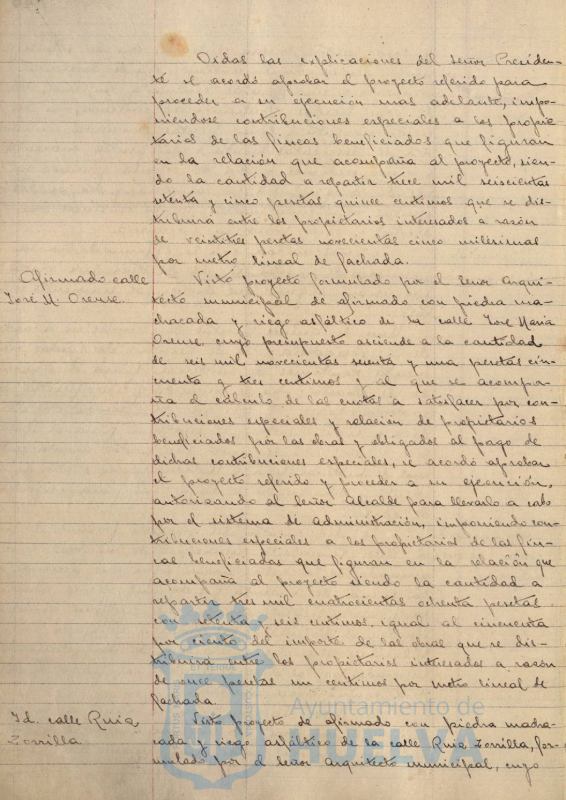 Oidas las explicaciones del Señor Presiden-
te se acordó aprobar el proyecto referido para
proceder a su ejecución mas adelante, impo-
niendose contribuciones especiales a los propie-
tarios de las fincas beneficiados que figuran
en la relación que acompaña al proyecto, sien-
do la cantidad a repartir trece mil seiscientas
setenta y cinco pesetas quince centimos que se dis-
tribuirá entre los propietarios interesados a razón
de veintitres pesetas novecientas cinco milesimas
por metro lineal de fachada.
Afirmado calle
José Mª Orense.
Visto proyecto formulado por el Señor Arqui-
tecto municipal de afirmado con piedra ma-
chacada y riego asfáltico de la calle José Maria
Orense, cuyo presupuesto asciende a la cantidad
de seis mil novecientas sesenta y una pesetas cin-
cuenta y tres centimos y al que se acompa-
ña el cálculo de las cuotas a satisfacer por con-
tribuciones especiales y relación de propietarios
beneficiados por las obras y obligados al pago de
dichas contribuciones especiales, se acordó aprobar
el proyecto referido y proceder a su ejecución,
autorizando al Señor Alcalde para llevarlo a cabo
por el sistema de administración, imponiendo con-
tribuciones especiales a los propietarios de las fin-
cas beneficiadas que figuran en la relación que
acompaña al proyecto siendo la cantidad a
repartir tres mil cuatrocientas ochenta pesetas
con setenta y seis centimos, igual al cincuenta
por ciento del importe de las obras que se dis-
tribuirá entre los propietarios interesados a razón
de once pesetas un centimos por metro lineal de
fachada
Id. calle Ruiz
Zorrilla
Visto proyecto de afirmado con piedra macha-
cada y riego asfáltico de la calle Ruiz Zorrilla, for-
mulado por el Señor Arquitecto municipal, cuyo
Ayuntamiento de
HUELVA